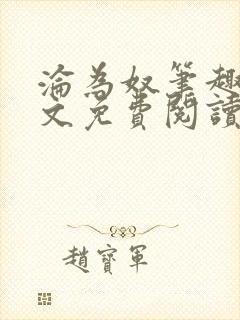 淪為奴筆趣
文免費閱讀
趙寶軍